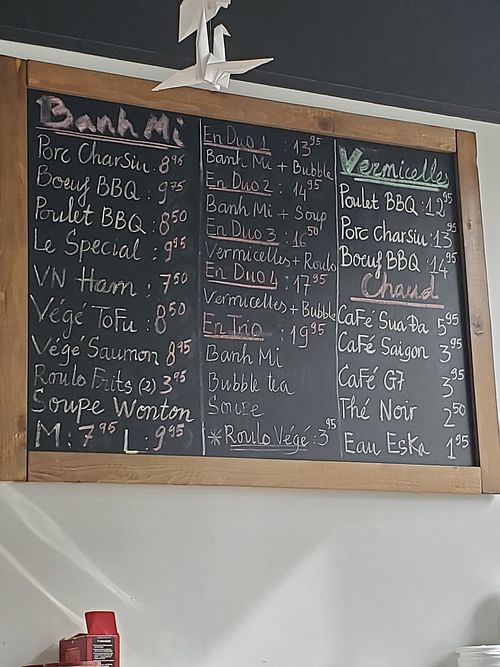 Banh Mi
Porc CharSiu. 8 95
Boeuf BBQ : 9 75
Poulet BBQ : 8 50
Le Special : 9 95
VN Ham : 7 50
Végé ToFu : 8 50
Végé Saumon 8 95
Roulo Frits (2) 3 95
Soupe Wonton
M : 7 95 L : 9 95
En Duo 1 : 13 95
Banh Mi + Bubble
En Duo 2 : 14 95
Banh Mi + Soup
En Duo 3 : 16 50
Vermicelles + Roulo
En Duo 4 : 17 95
Vermicelles + Bubble
En Trio : 19 95
Banh Mi
Bubble tea
Soupe
* Roulo Végé : 3 95
Vermicelles
Poulet BBQ : 12 95
Porc Charsiu : 13 95
Boeuf BBQ : 14 95
Chaud
CaFé Sua Da 5 95
CaFé Saigon 3 95
CaFé G7 3 95
Thé Noir 2 50
Eau EsKa 1 95